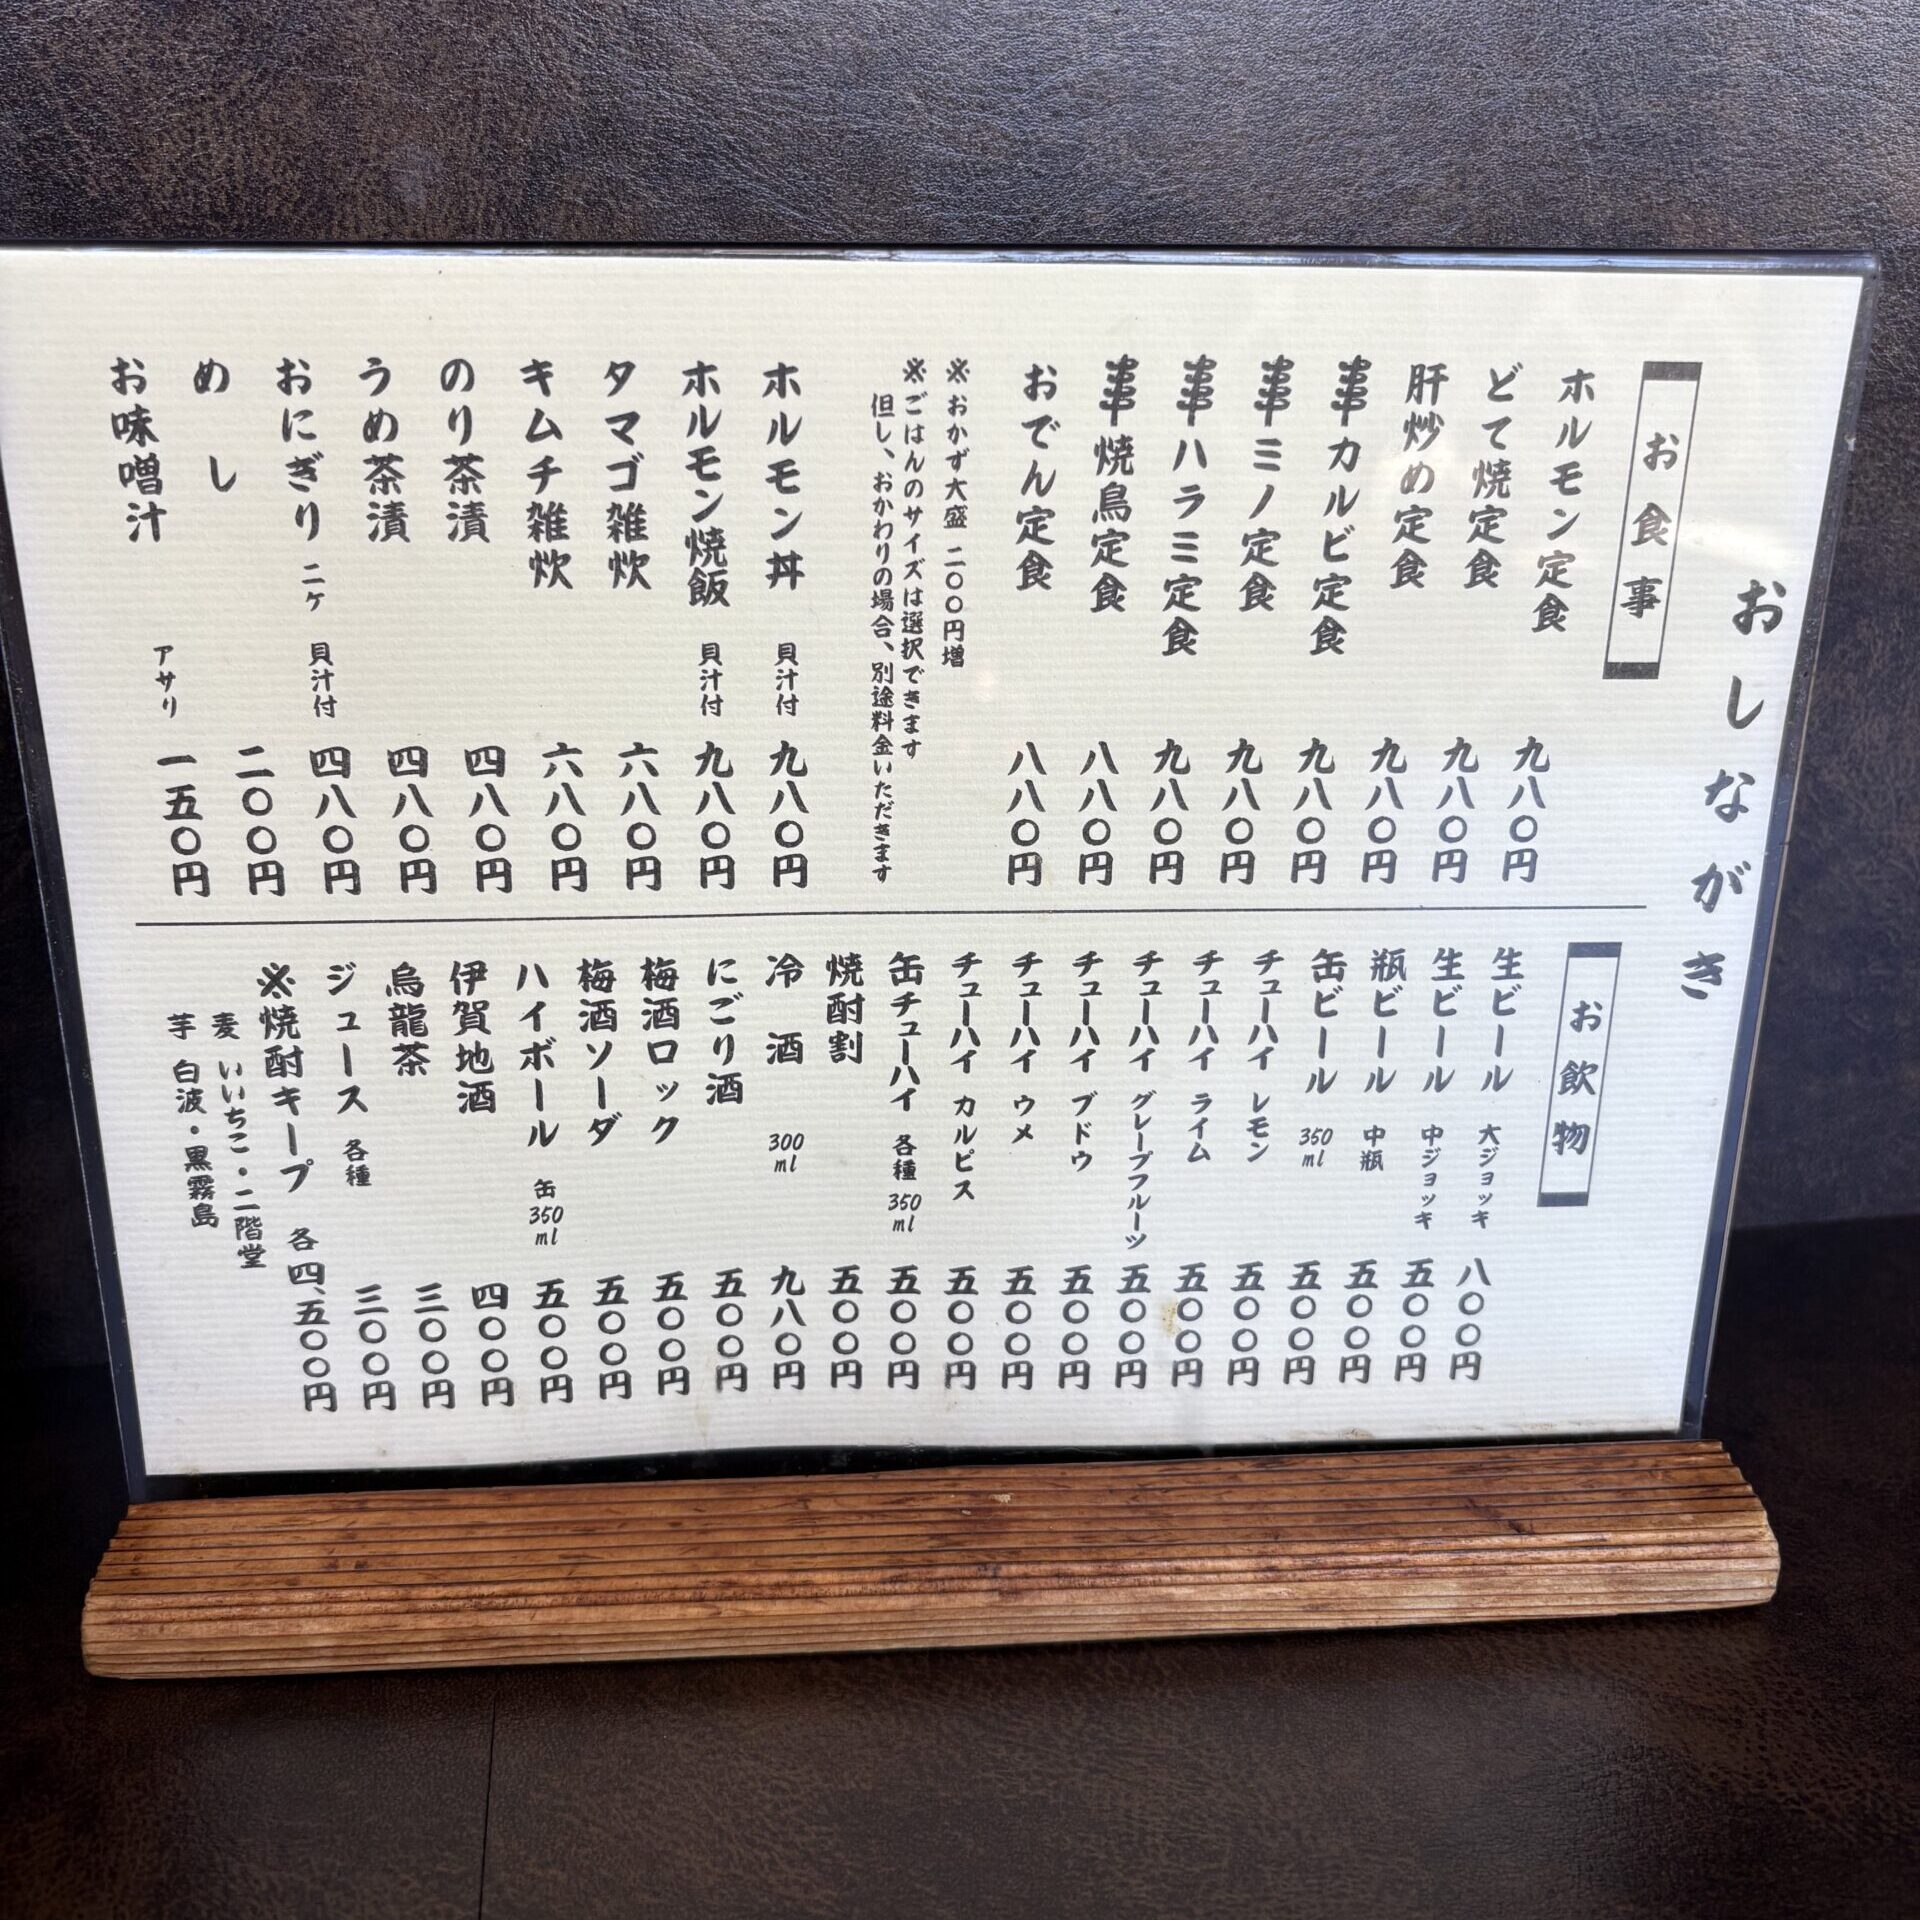 おしながき
お食事
ホルモン定食 九八〇円
どて焼定食 九八〇円
肝炒め定食 九八〇円
串カルビ定食 九八〇円
串ミノ定食 九八〇円
串ハラミ定食 九八〇円
串焼鳥定食 八八〇円
おでん定食 八八〇円
※おかず大盛 二〇〇円増
※ごはんのサイズは選択できます
但し、おかわりの場合、別途料金いただきます
ホルモン丼 貝汁付 九八〇円
ホルモン焼飯 貝汁付 九八〇円
タマゴ雑炊 六八〇円
キムチ雑炊 六八〇円
のり茶漬 四八〇円
うめ茶漬 四八〇円
おにぎり 二ケ 貝汁付 四八〇円
めし 二〇〇円
お味噌汁 アサリ 一五〇円
お飲物
生ビール 大ジョッキ 八〇〇円
生ビール 中ジョッキ 五〇〇円
瓶ビール 中瓶 五〇〇円
缶ビール 350ml 五〇〇円
チューハイ レモン 五〇〇円
チューハイ ライム 五〇〇円
チューハイ グレープフルーツ 五〇〇円
チューハイ ブドウ 五〇〇円
チューハイ ウメ 五〇〇円
チューハイ カルピス 五〇〇円
缶チューハイ 各種 350ml 五〇〇円
焼酎割 五〇〇円
冷酒 300ml 九八〇円
にごり酒 五〇〇円
梅酒ロック 五〇〇円
梅酒ソーダ 五〇〇円
ハイボール 缶350ml 五〇〇円
伊賀地酒 四〇〇円
烏龍茶 三〇〇円
ジュース 各種 三〇〇円
※焼酎キープ 各四、五〇〇円
麦 いいちこ・二階堂
芋 白波・黒霧島